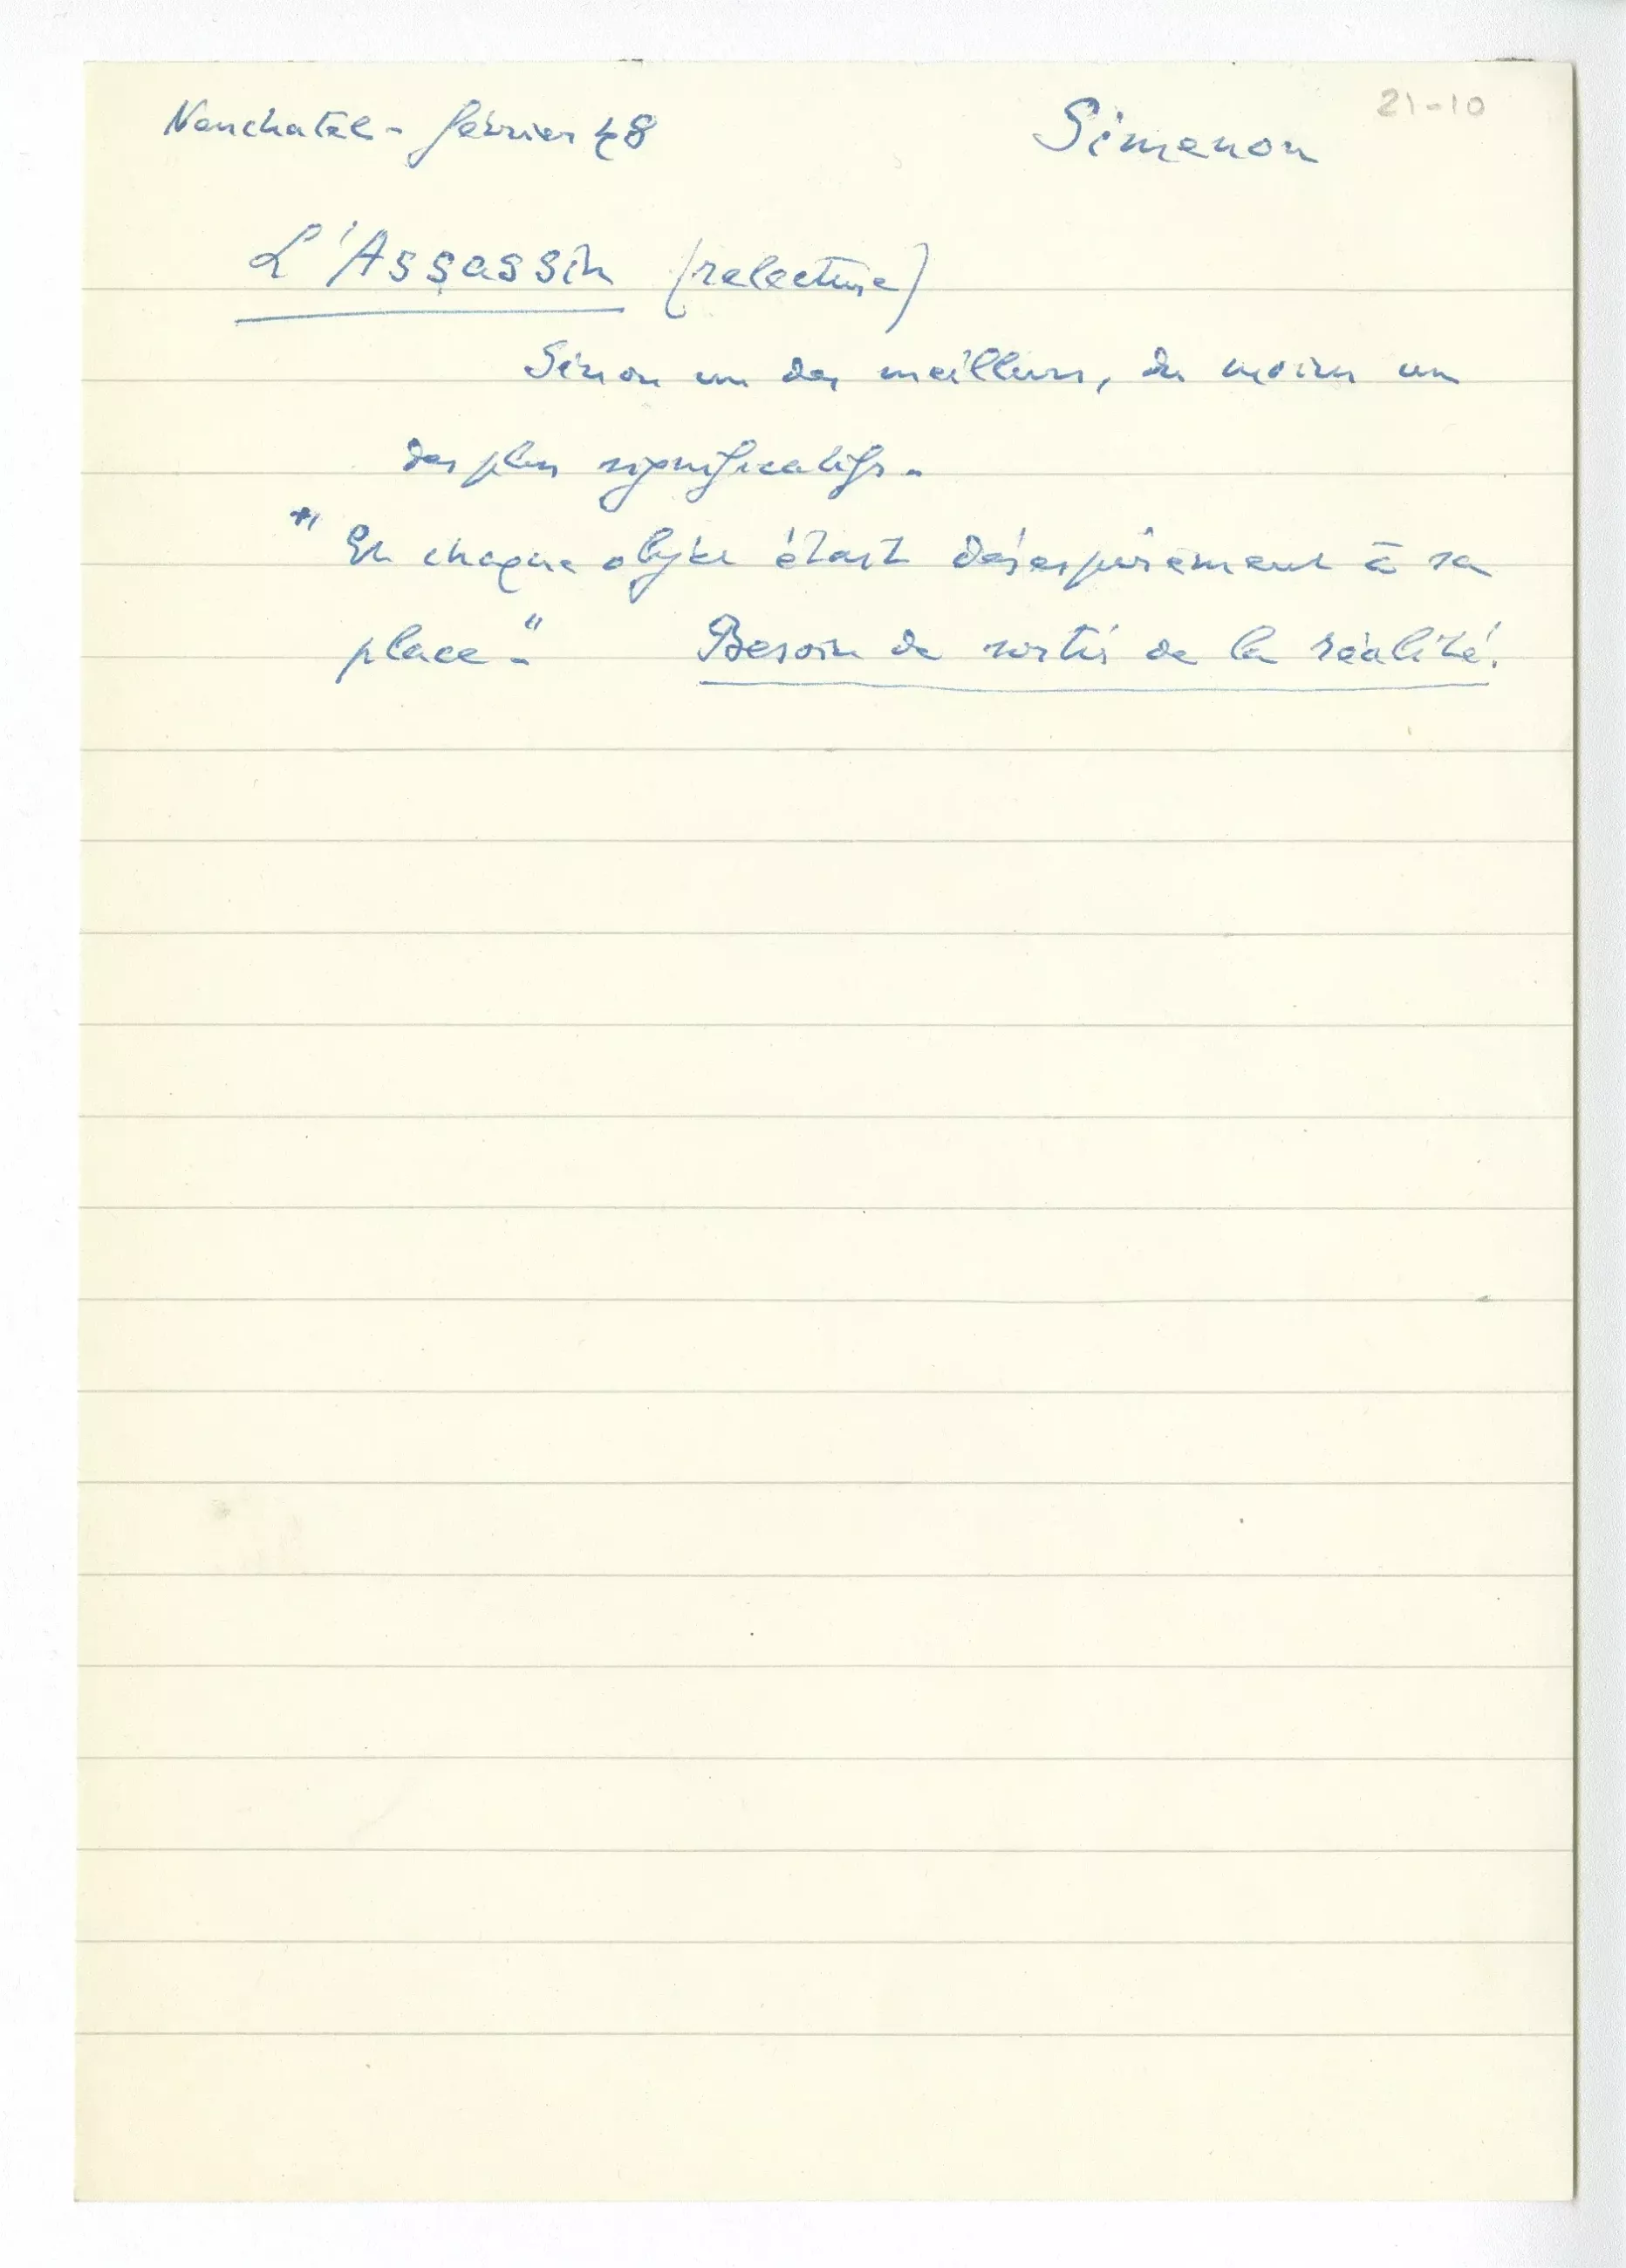 21-10
Neuchatel - février 48 Simenon
L'Assassin (relecture)
Sinon un des meilleurs, du moins un
des plus significatifs.
"Et chaque objet était désespérément à sa
place." Besoin de sortir de la réalité.